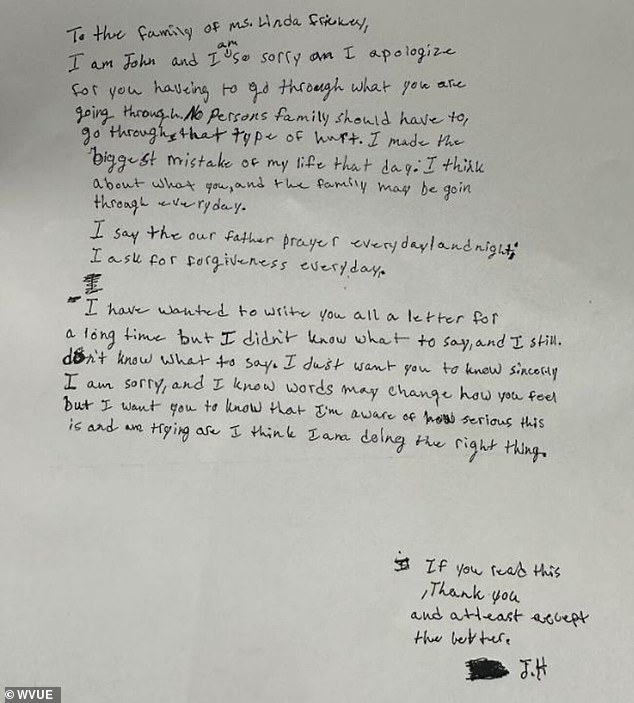 To the family of Ms. Linda Frickey,
I am John and I am so sorry an I apologize
for you haveing to go through what you are
going through. No persons family should have to,
go through that type of hurt. I made the
biggest mistake of my life that day. I think
about what you, and the family may be goin
through everyday.
I say the our father prayer everyday and night;
I ask for forgiveness everyday.
I have wanted to write you all a letter for
a long time but I didn't know what to say, and I still.
don't know what to say. I Just want you to know sincerly
I am sorry, and I know words may change how you feel
but I want you to know that I'm aware of how serious this
is and are trying are I think I am doing the right thing.
If you read this
,Thank you
and atleast accept
the letter.
J.H
© WVUE